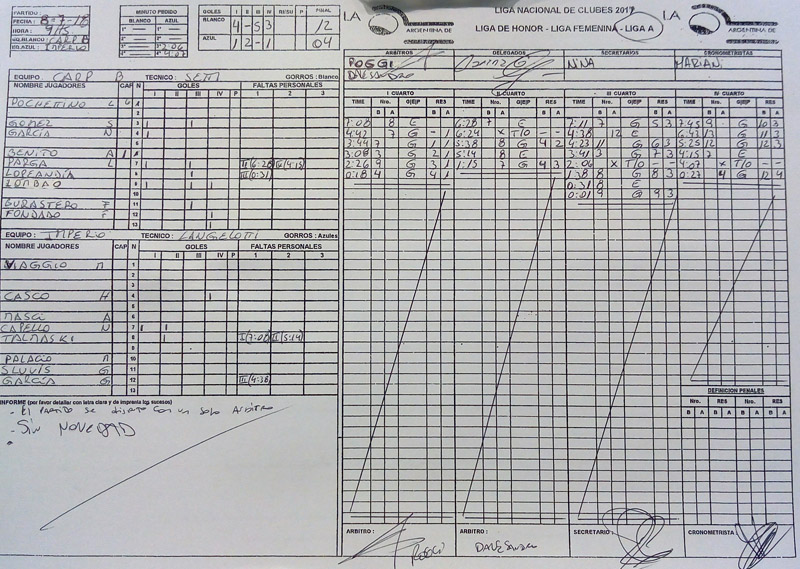 PARTIDO:
FECHA: 8-7-18
HORA: 9:15
EQ.BLANCO: CARP B
EQ.AZUL: IMPERIO
MINUTO PEDIDO
BLANCO AZUL
1º
2º
3º 2:06
4º 4:07
GOLES I II III IV RESU P FINAL
BLANCO 4 - 5 3 12
AZUL 1 2 - 1 04
LA
ARGENTINA DE
LIGA NACIONAL DE CLUBES 2017
LIGA DE HONOR - LIGA FEMENINA - LIGA A
LA
ARGENTINA DE
EQUIPO: CARP B TECNICO: SETTI GORROS: Blanco
NOMBRE JUGADORES CAP N GOLES FALTAS PERSONALES
I II III IV P 1 2 3
POCHETTINO L
GOMEZ S 3
GARCÍA N 4
BENITO A
PARGA L 7 III(6:28) III(4:15)
LOPEANDÍA 8 III(0:31)
ZOMBAO 9
BURASTERO F 11
FONDADO F 12
13
EQUIPO: IMPERIO TECNICO: LANGELOTTI GORROS: Azules
NOMBRE JUGADORES CAP N GOLES FALTAS PERSONALES
I II III IV P 1 2 3
VIAGGIO M 1
2
3
CASCO H 4
5
MASCI A 6
CAPELLO N 7
TALMASKI 8 I(7:08) II(5:14)
9
PALACIO M 10
SLUVIS G 11
GARCÍA G 12 III(4:38)
13
INFORME (por favor detallar con letra clara y de imprenta los sucesos)
- El PARTIDO SE disputó con un solo Arbitro
- Sin NOVEDAD
ARBITROS DELEGADOS SECRETARIOS CRONOMETRISTAS
POGGI NINA MARIAN
DALESANDRO
I CUARTO II CUARTO III CUARTO IV CUARTO
TIME Nro. G|E|P RES TIME Nro. G|E|P RES TIME Nro. G|E|P RES TIME Nro. G|E|P RES
B A B A B A B A B A B A B A B A
7:08 8 E 6:28 7 E 7:11 7 G 5 3 7:45 9 G 10 3
4:42 7 G - 1 6:24 X T/O - - 4:38 12 E 6:43 G 11 3
3:44 7 G 1 1 5:38 8 G 4 2 4:23 11 G 6 3 5:25 12 G 12 3
3:08 3 G 2 1 5:14 8 E 3:41 3 G 7 3 4:15 7 E
2:26 9 G 3 1 1:15 7 G 4 3 2:06 X T/O - - 4:07 X T/O - -
0:18 4 G 4 1 1:38 8 G 8 3 0:27 4 G 12 4
0:31 8 E
0:01 9 G 9 3
DEFINICION PENALES
Nro. RES Nro. RES
B A B A B A B A
ARBITRO: POGGI
ARBITRO: DALESANDRO
SECRETARIO:
CRONOMETRISTA: